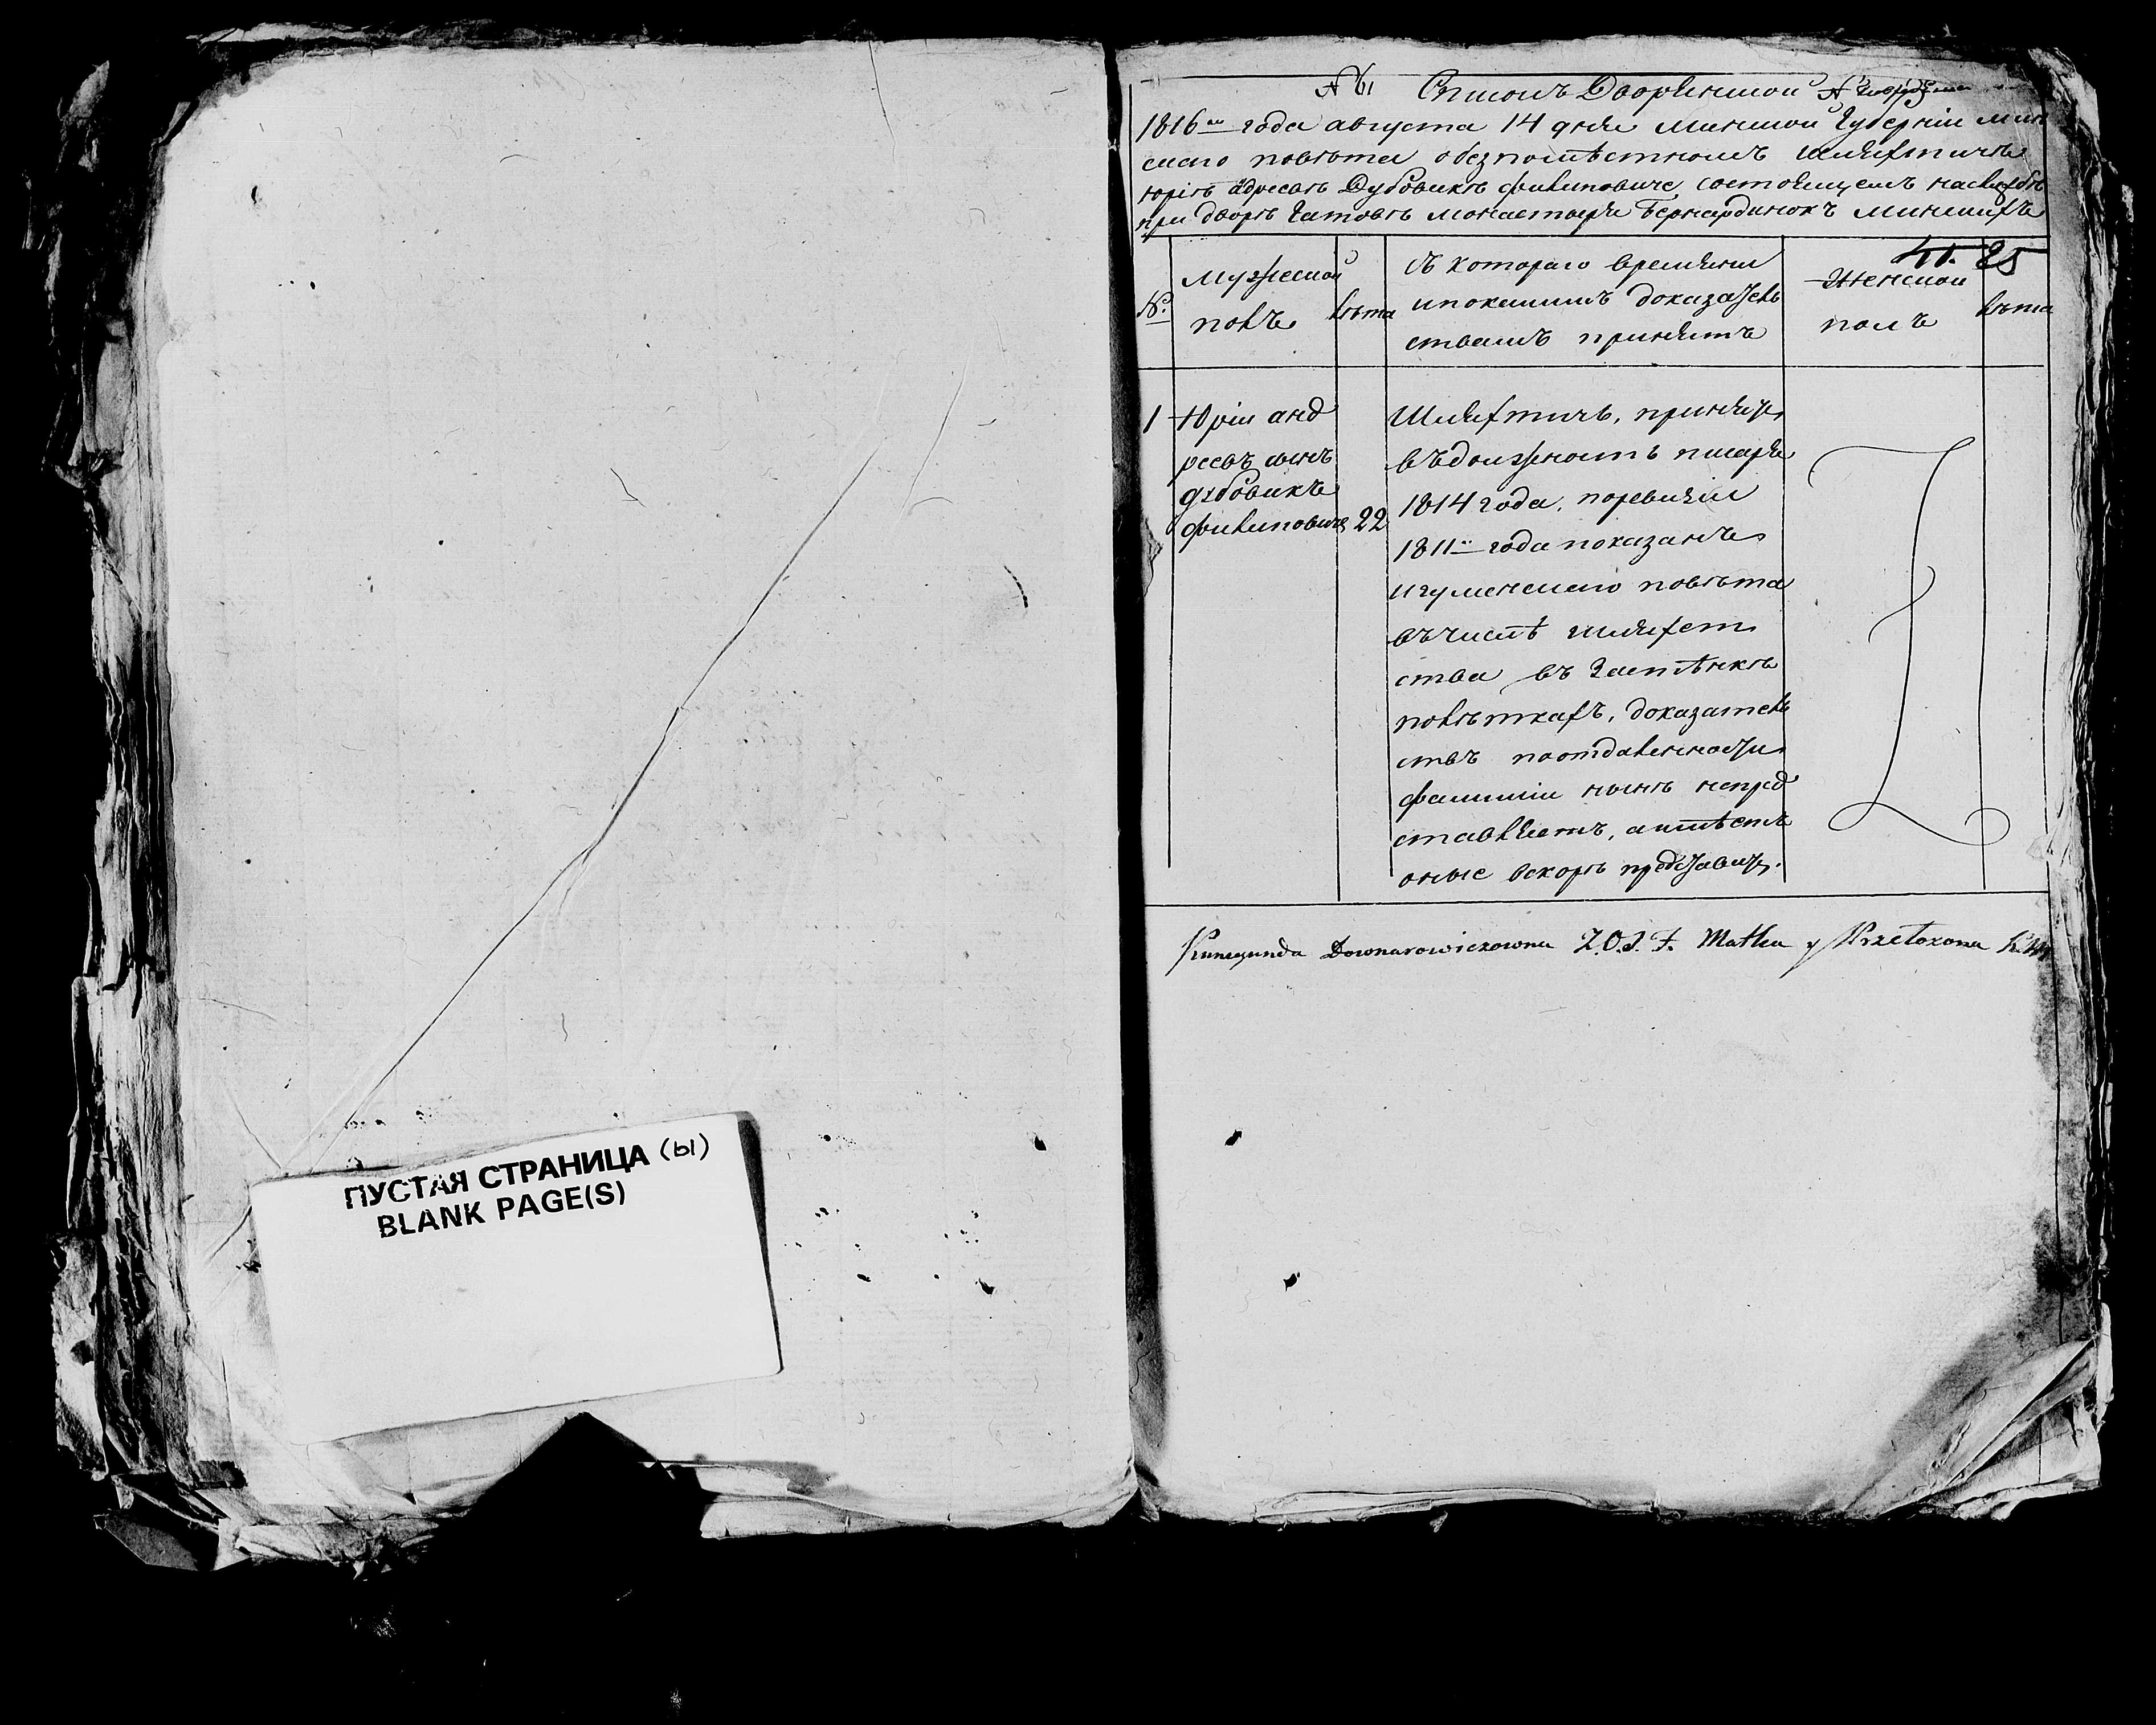 ПУСТАЯ СТРАНИЦА (ы)
BLANK PAGE(S)
Списокъ Дворянской
1816го года августа 14 дня Минской Губерніи Мин
скаго повѣта обезпомѣстномъ шляхтичѣ
юріѣ адресовѣ Дубовикѣ филиповиче состоящемъ наслужбѣ
при дворѣ Гатовѣ монастыря Бернардинокъ Минскихъ
41. 25
№.
Мужеской
полъ
лѣта
съ котораго времяни
ипокакимъ доказатель
ствамъ принятъ
Женской
полъ
лѣта
1
Юрій анд
реевъ сынъ
дубовикъ
филиповичъ
22
Шляхтичъ, принятъ
въдолжность писаря
1814 года, поревизіи
1811го года показанъ
игуменскаго повѣта
въчислѣ шляхет
ства въ Застѣнкѣ
полѣткахъ, доказатель
ствъ поотдаленности
фамиліи нынѣ непред
ставляетъ, аимѣетъ
оные вскорѣ представить.
Kunegunda Downarowiczowna Z.O.S.F. Matka y Przełożona